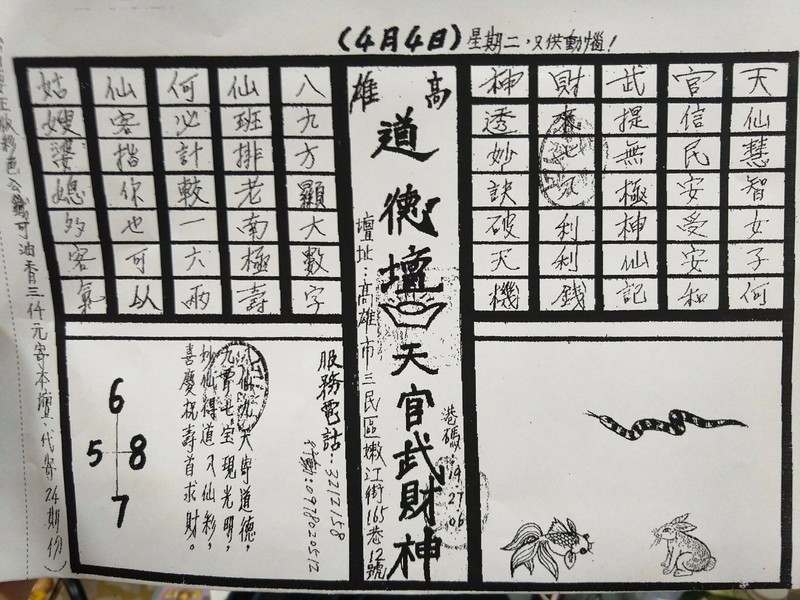 (4月4日)星期二,又供動惱!
天仙慧智女子何
官信民安受安和
武提無極神仙記
財來 利利錢
神透妙訣破天機
高雄
道德壇天官武財神
壇址:高雄市三民區嫩江街165巷12號
港碼
19
27
06
八九方顯大數字
仙班排老南極壽
何必計較一六兩
仙客指你也可以
姑嫂婆媳多客氣
服務電話:3212158
行動:0978020512
天寄道德,
七宝現光明,
妙仙得道八仙彩,
喜慶祝壽首求財。
6
5 8
7
正版彩色公籤可油香三仟元寄本壇、代寄24期份)